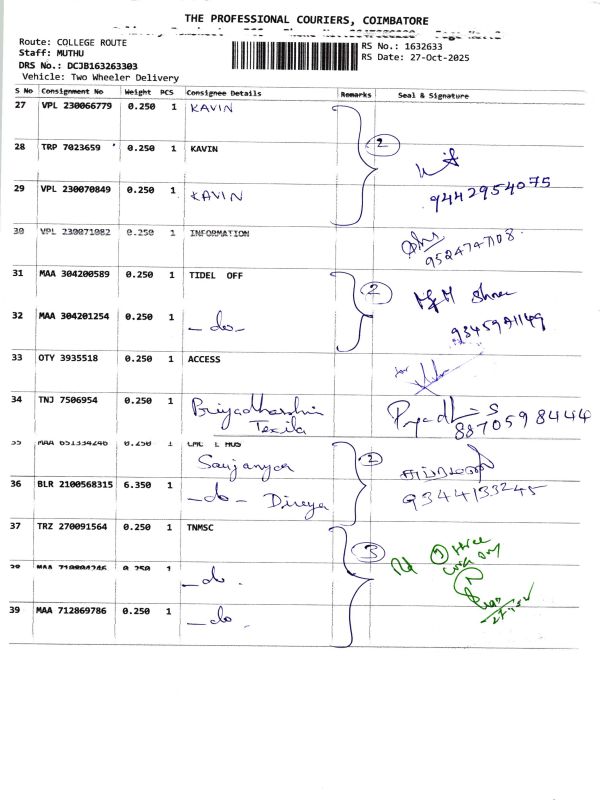 THE PROFESSIONAL COURIERS, COIMBATORE
Route: COLLEGE ROUTE
Staff: MUTHU
DRS No.: DCJB163263303
Vehicle: Two Wheeler Delivery
RS No.: 1632633
RS Date: 27-Oct-2025
S No Consignment No Weight PCS Consignee Details Remarks Seal & Signature
27 VPL 230066779 0.250 1 KAVIN
28 TRP 7023659 0.250 1 KAVIN 2
29 VPL 230070849 0.250 1 KAVIN
9442954075
30 VPL 230071082 0.250 1 INFORMATION
31 MAA 304200589 0.250 1 TIDEL OFF 2
32 MAA 304201254 0.250 1 -do-
33 OTY 3935518 0.250 1 ACCESS
34 TNJ 7506954 0.250 1 Priyadharshini
8870598444
35 0.250 1
2
36 BLR 2100568315 6.350 1 -do-
9344133245
37 TRZ 270091564 0.250 1 TNMSC
3 three
0.250 1 -do-
39 MAA 712869786 0.250 1 -do-